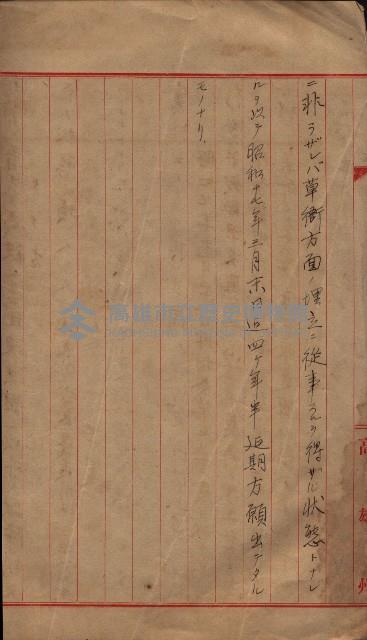 ニ非ラザレバ草衙方面ノ埋立ニ從事スルヲ得ザル狀態トナレ
ルヲ以テ昭和十七年三月末日迄四ヶ年半延期方願出デタル
モノナリ、
高雄州
高雄市立歷史博物館